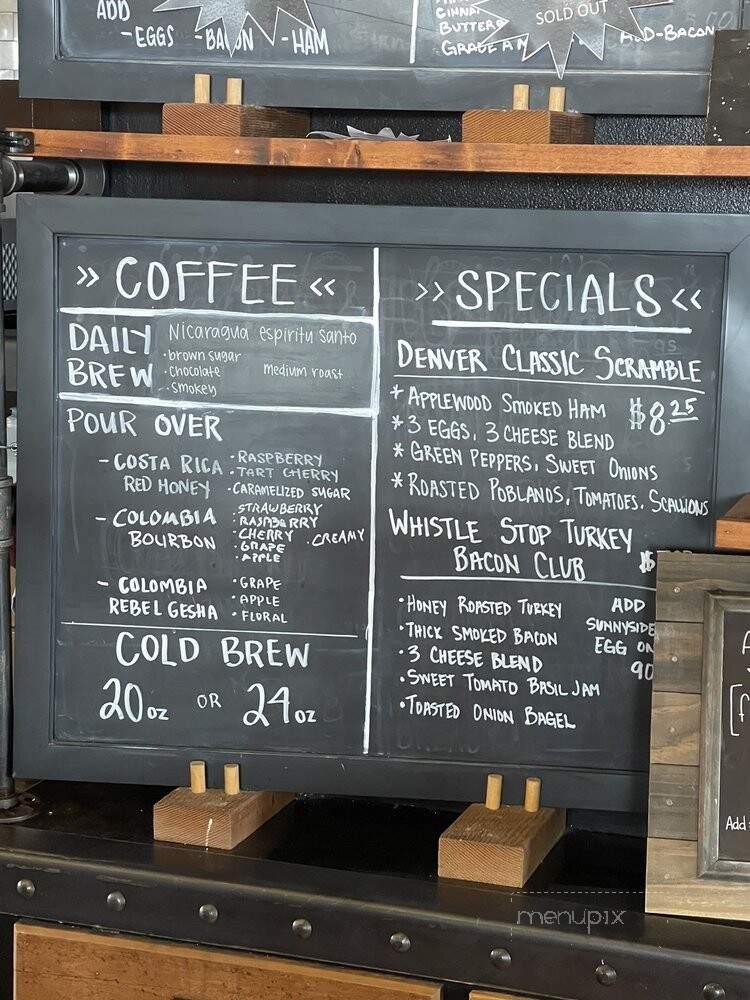 ADD
-EGGS -BACON -HAM
CINNA
BUTTER
GRADE A
SOLD OUT
ADD-BACON
>> COFFEE <<
DAILY BREW
Nicaragua espiritu santo
·brown sugar
·chocolate medium roast
·smokey
POUR OVER
-COSTA RICA RED HONEY
·RASPBERRY
·TART CHERRY
·CARAMELIZED SUGAR
-COLOMBIA BOURBON
·STRAWBERRY
·RASPBERRY
·CHERRY ·CREAMY
·GRAPE
·APPLE
-COLOMBIA REBEL GESHA
·GRAPE
·APPLE
·FLORAL
COLD BREW
20oz OR 24oz
>> SPECIALS <<
DENVER CLASSIC SCRAMBLE
* APPLEWOOD SMOKED HAM $8.25
* 3 EGGS, 3 CHEESE BLEND
* GREEN PEPPERS, SWEET ONIONS
* ROASTED POBLANOS, TOMATOES, SCALLIONS
WHISTLE STOP TURKEY
BACON CLUB $
·HONEY ROASTED TURKEY
·THICK SMOKED BACON
·3 CHEESE BLEND
·SWEET TOMATO BASIL JAM
·TOASTED ONION BAGEL
ADD
SUNNYSIDE
EGG ON
90
Add
menupix